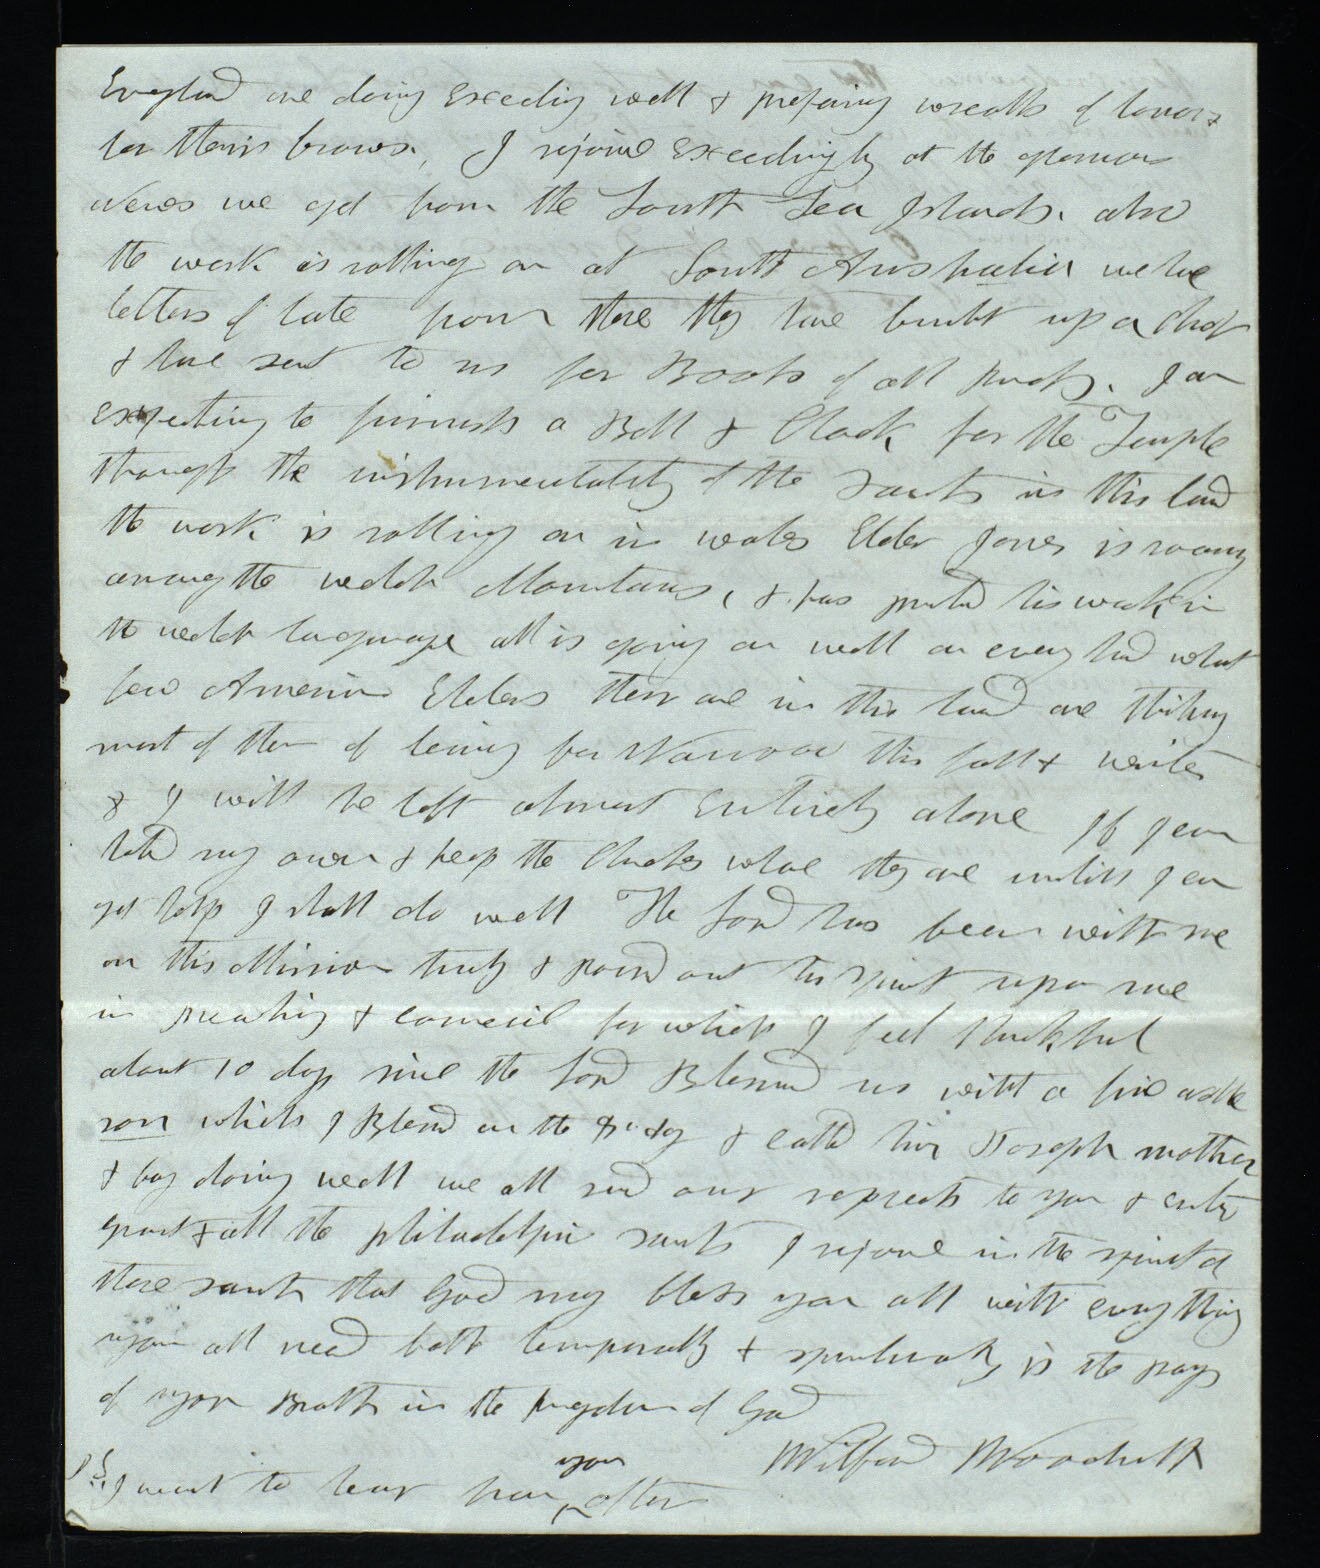 England are doing exceding well & prepairing wreaths of honors
for their brows. I rejoice exceedingly at the glorious
News we get from the South Sea Islands. also
the work is rolling on at South Australia we have
letters of late from there they have built up a Chch
& have sent to us for Books of all kinds. I am
expecting to furnish a Bell & Clock for the Temple
through the instrumentality of the Saints in this land
the work is rolling on in wales Elder Jones is roaring
among the welch Mountains, & has printed his work in
the welch language all is going on well on every hand what
few American Elders there are in this land are thinking
most of them of leaving for Nauvoo this fall & winter
& I will be left almost entirely alone If I can
hold my own & keep the Churches whare they are untill I can
get help I shall do well The Lord has been with me
on this Mission truly & pourd out his spirit upon me
in preaching & councel for which I feel thankful
about 10 days since the Lord Blessed us with a fine
son which I Blessd on the 8 day & calld him Joseph mother
& boy doing well we all send our respects to you &
& all the philadelphia saints I rejoice in the spirit of
those saints that God may bless you all with every thing
you all need both temporally & spiritualy is the prayer
of your Brother in the kingdom of God
Wilford Woodruff
PS I want to hear from you often